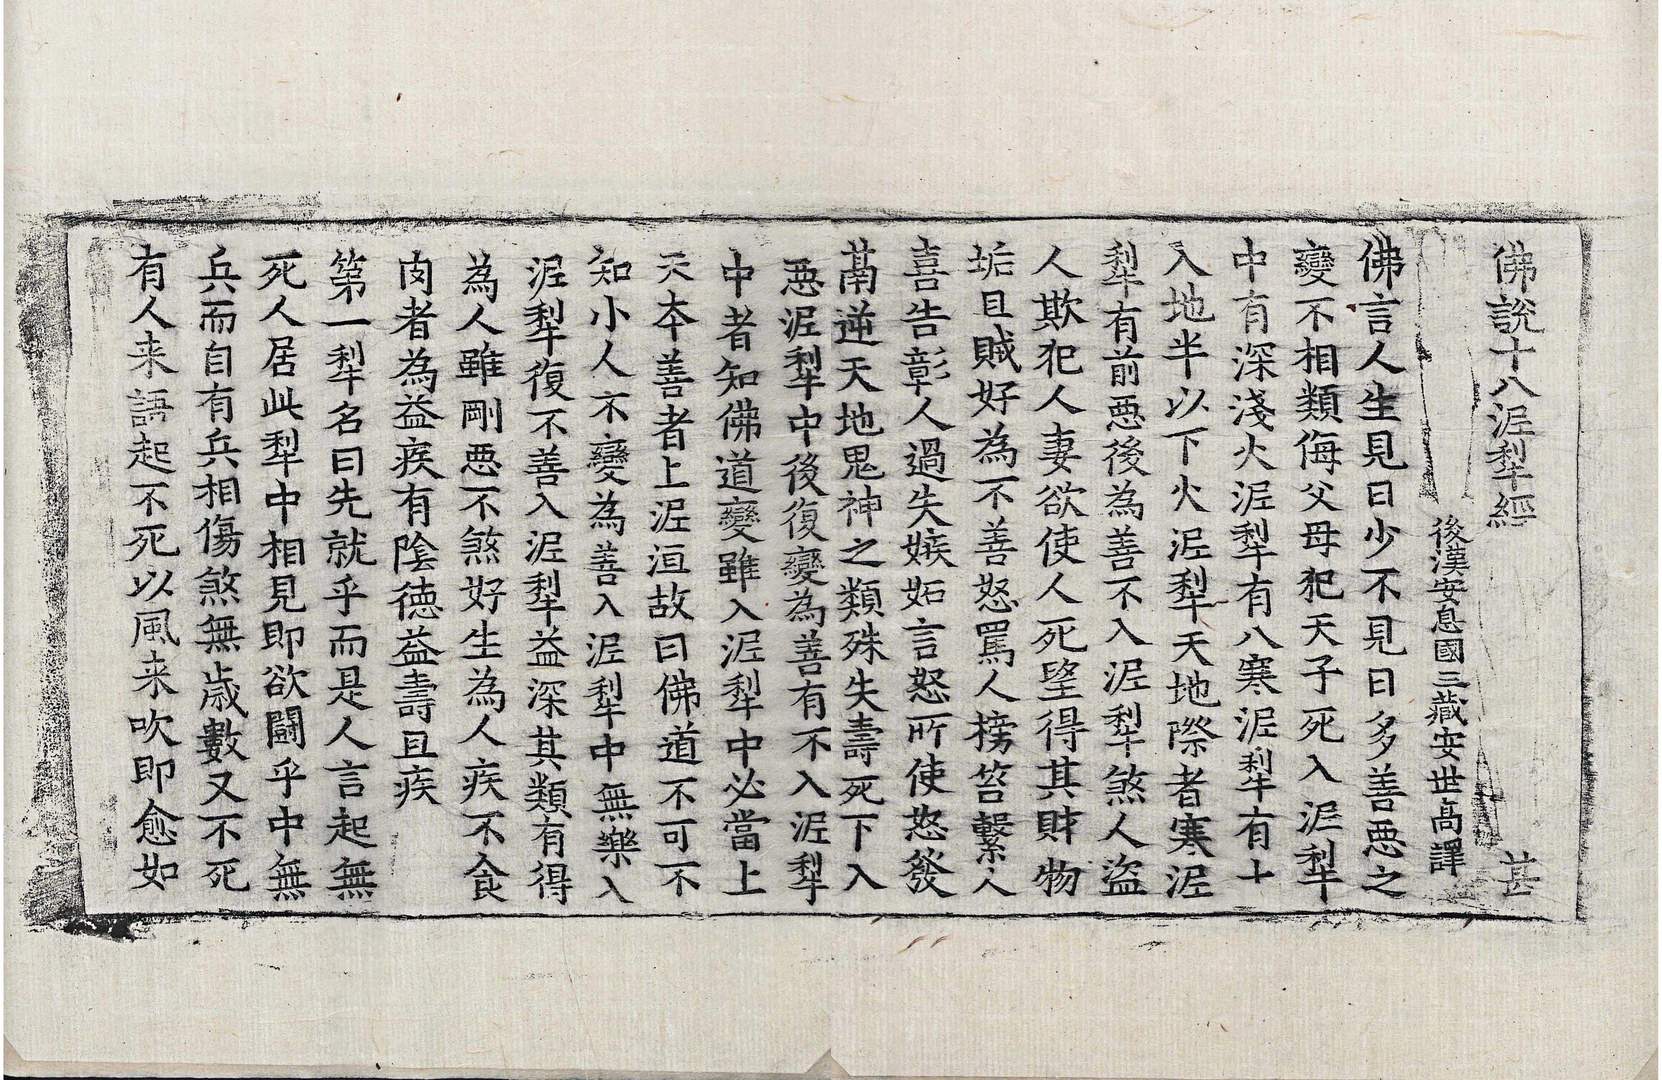 佛說十八泥犁經 甚
後漢安息國三藏安世高譯
佛言人生見日少不見日多善惡之
變不相類侮父母犯天子死入泥犁
中有深淺火泥犁有八寒泥犁有十
入地半以下火泥犁天地際者寒泥
犁有前惡後為善不入泥犁煞人盜
人欺犯人妻欲使人死望得其財物
垢且賊好為不善怒罵人搒笞繫人
喜告彰人過失嫉妬言怒所使怒發
啚逆天地鬼神之類殊失壽死下入
惡泥犁中後復變為善有不入泥犁
中者知佛道變雖入泥犁中必當上
天本善者上泥洹故曰佛道不可不
知小人不變為善入泥犁中無樂入
泥犁復不善入泥犁益深其類有得
為人雖剛惡不煞好生為人疾不食
肉者為益疾有陰德益壽且疾
第一犁名曰先就乎而是人言起無
死人居此犁中相見即欲鬪乎中無
兵而自有兵相傷煞無歲數又不死
有人来語起不死以風来吹即愈如